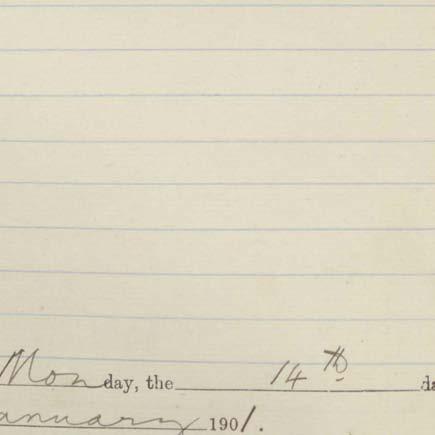 Monday, the 14th da
anuary 1901.